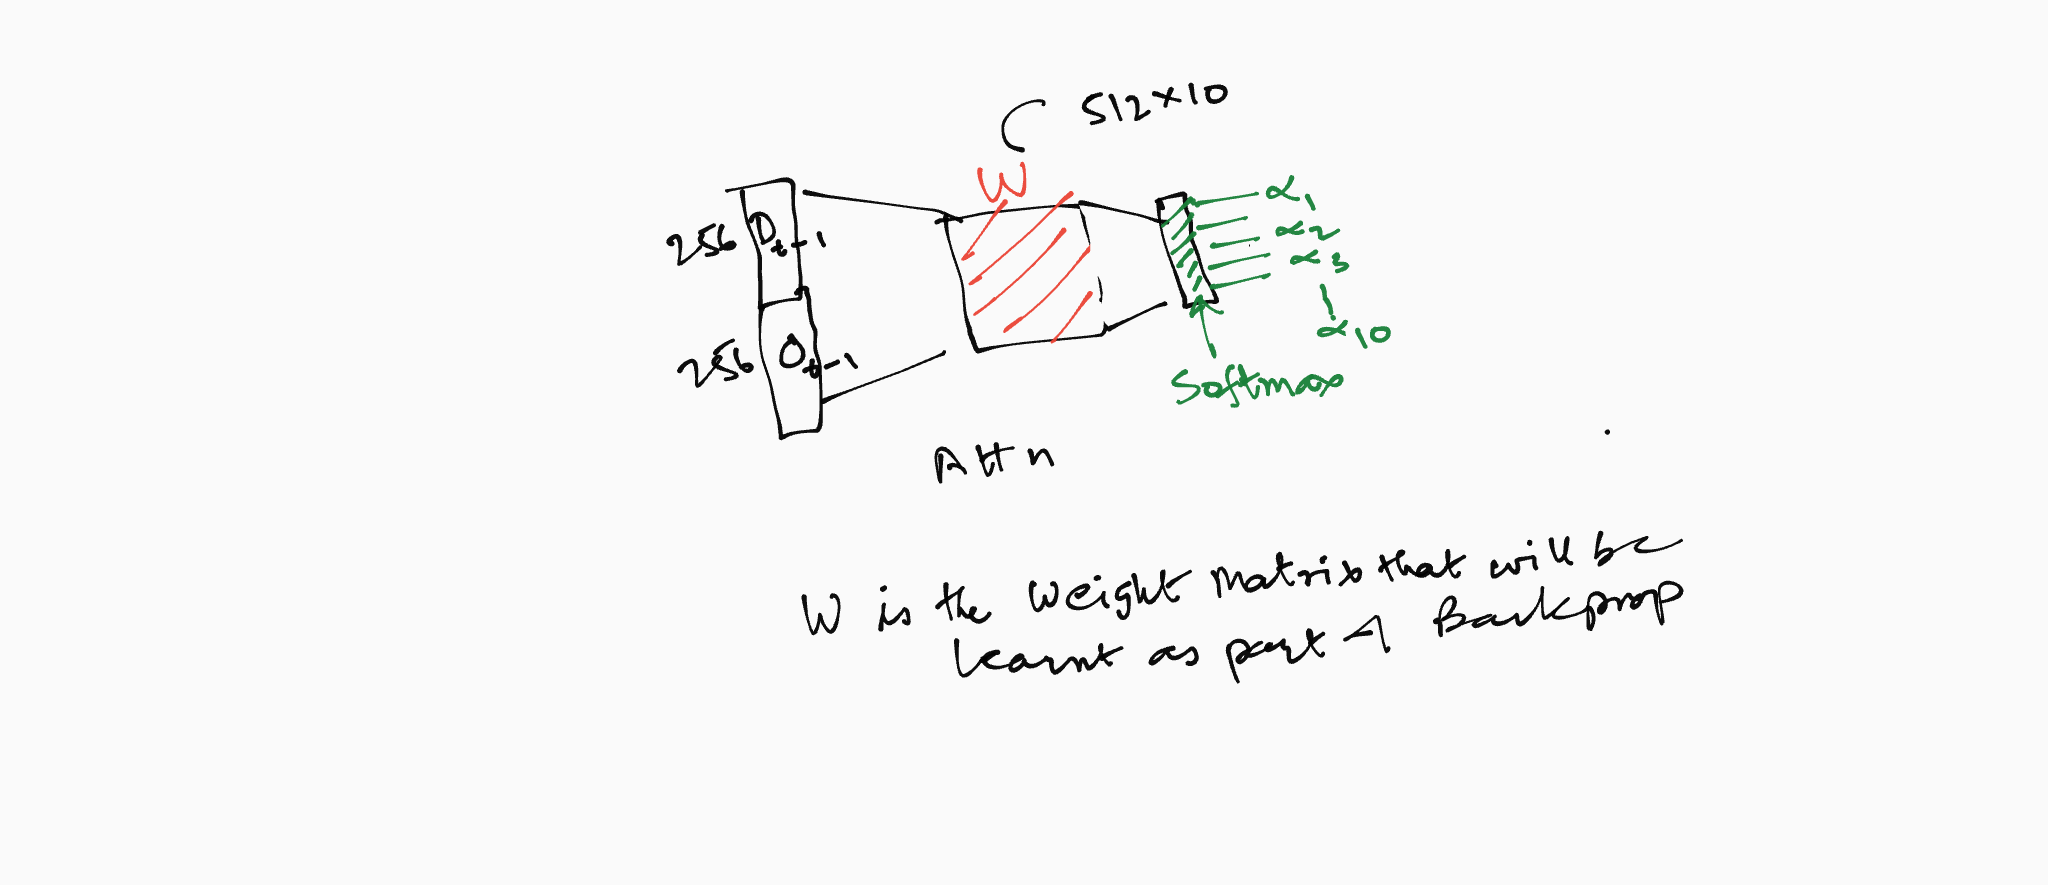 512×10
W
256 D t-1
α1
α2
α3
α10
256 O t-1
Softmax
Attn
W is the Weight Matrix that will be
learnt as part of Backprop